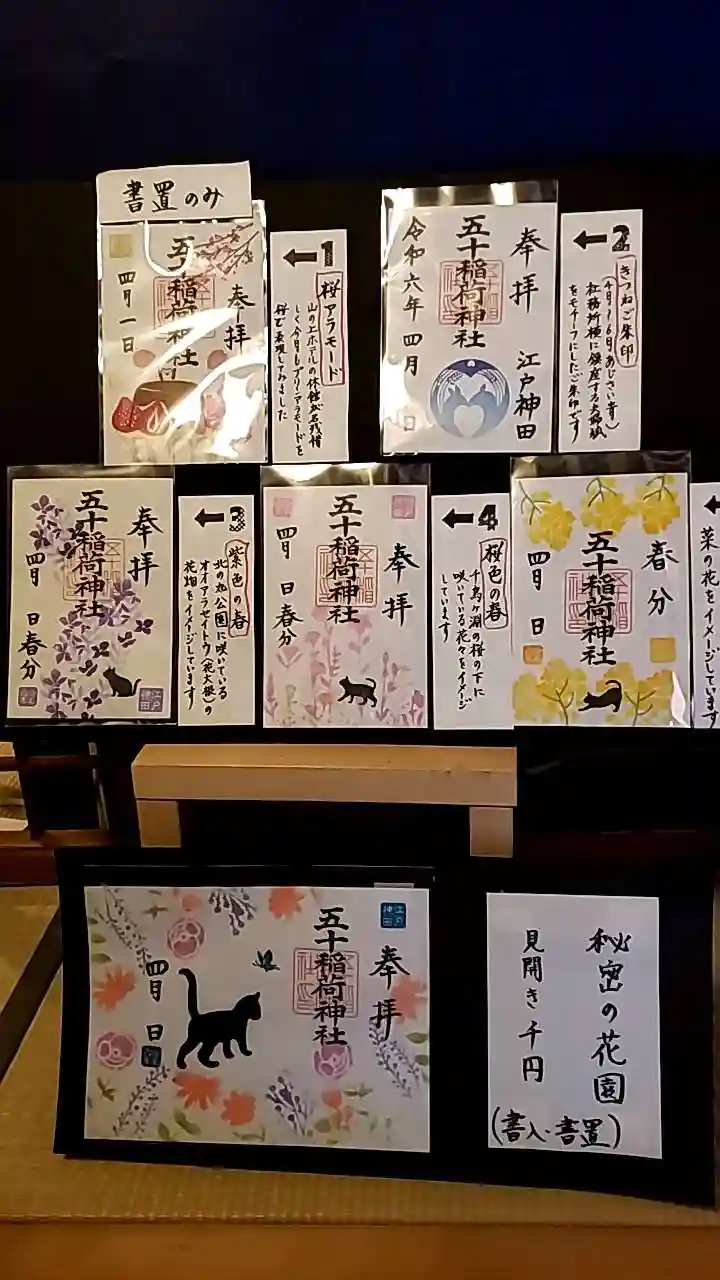 書置のみ
奉拝
五十稲荷神社
四月一日
←1
桜アラモード
山の上ホテルの休館が名残惜
しく今月もプリンアラモードを
桜で表現してみました
奉拝
江戸神田
五十稲荷神社
令和六年 四月 日
←2
きつねご朱印
4月〜6月あじさい青
社務所横に鎮座する夫婦狐
をモチーフにしたご朱印です
奉拝
五十稲荷神社
四月 日 春分
江戸神田
←3
紫色の春
北の丸公園に咲いている
オオアラセイトウ(花大根)の
花畑をイメージしています
奉拝
五十稲荷神社
四月 日 春分
←4
桜色の春
千鳥ヶ淵の桜の下に
咲いている花々をイメージ
しています
春分
五十稲荷神社
四月 日
菜の花をイメージしています
奉拝
五十稲荷神社
四月 日
江戸神田
秘密の花園
見開き 千円
(書入・書置)